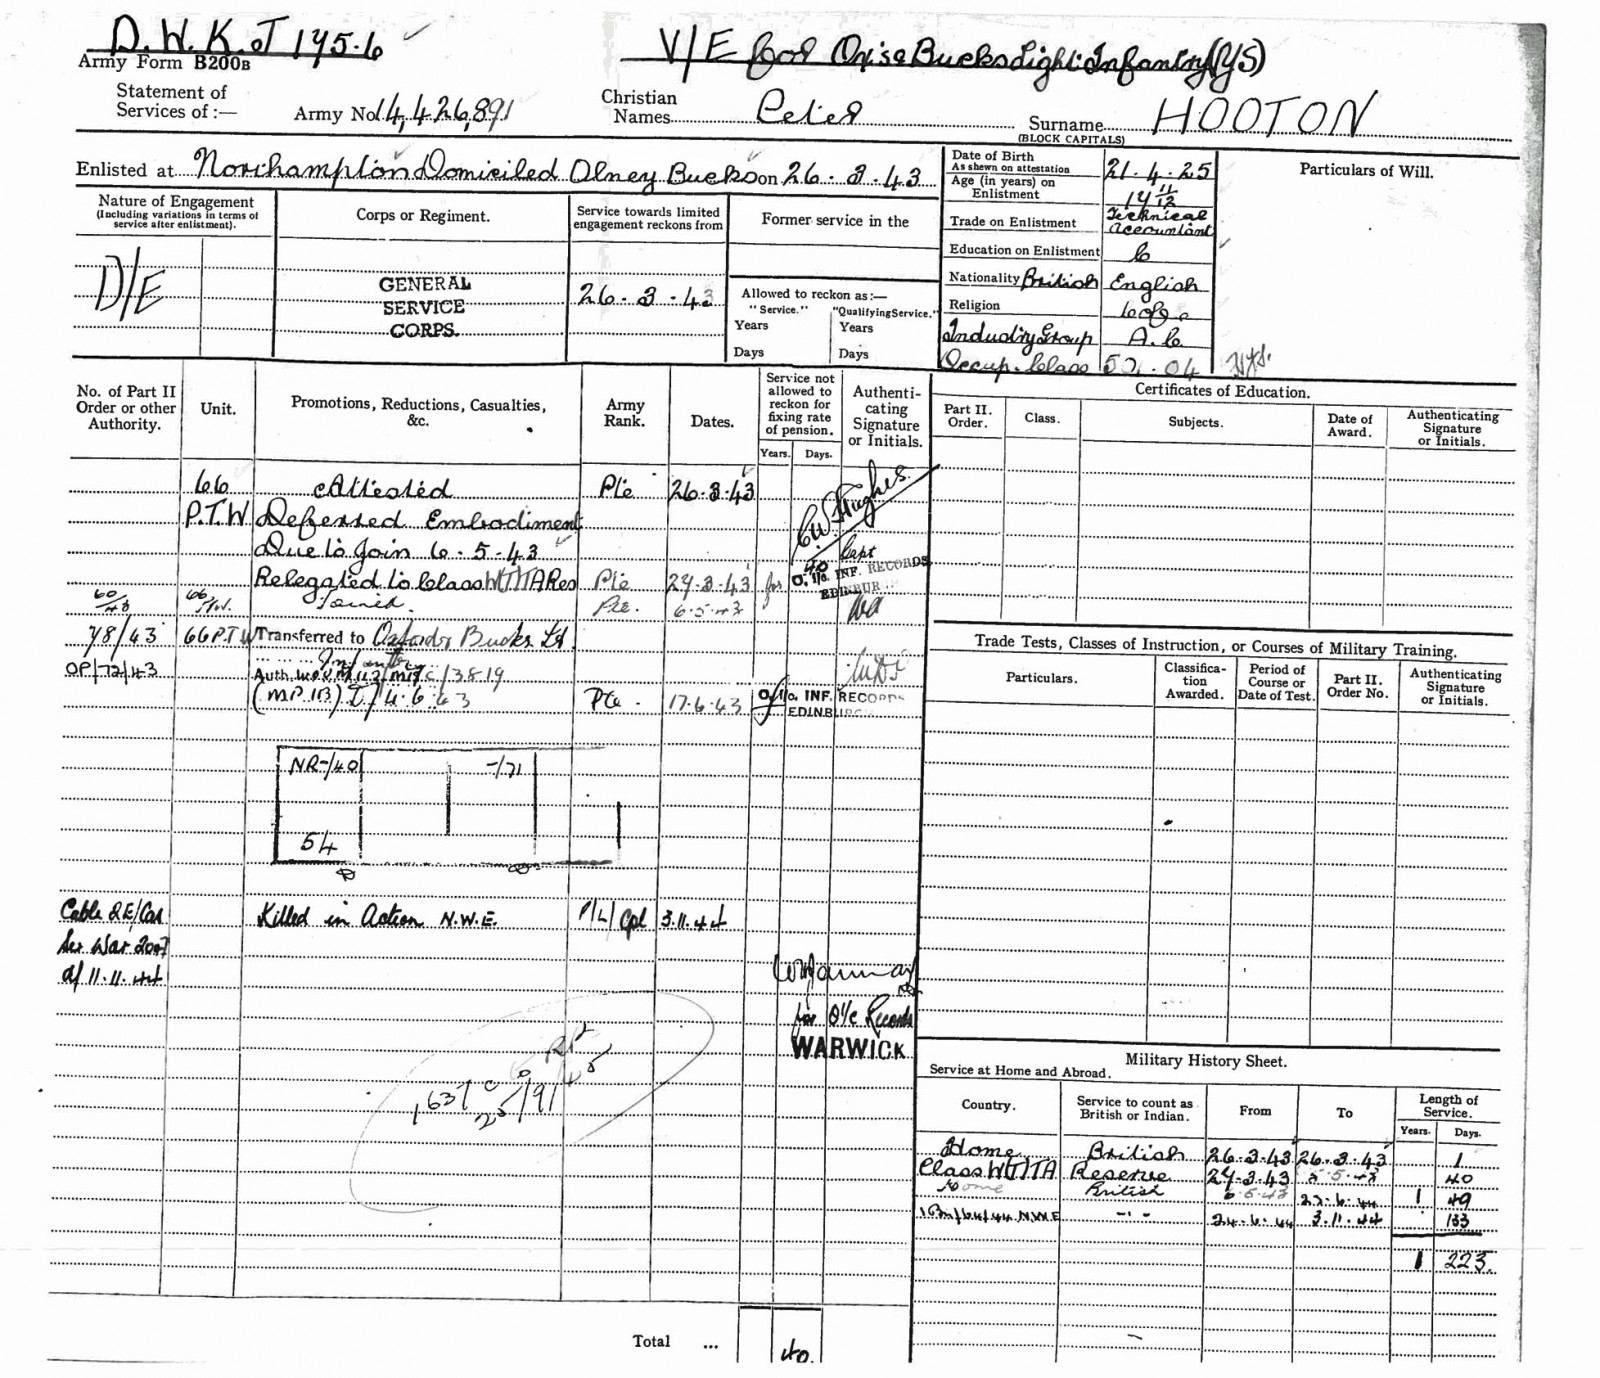 D.W.K. of 175.6
V/E for Ox: & Bucks Light: Infantry (YS)
Army Form B200B
Statement of
Services of :—
Army No 14,426,891
Christian
Names Peter
Surname HOOTON
(BLOCK CAPITALS)
Enlisted at Northampton Domiciled Olney Bucks on 26.3.43
Date of Birth
As shewn on attestation
21.4.25
Age (in years) on
Enlistment
17 11/12
Trade on Enlistment Technical
Accountant
Education on Enlistment C
Nationality British English
Religion C of E
Industry Group A.C
Occup. Class 04
Particulars of Will.
Nature of Engagement
(Including variations in terms of
service after enlistment).
Corps or Regiment.
Service towards limited
engagement reckons from
Former service in the
D/E
GENERAL
SERVICE
CORPS.
26.3.43
Allowed to reckon as:—
"Service."
"Qualifying Service."
Years
Years
Days
Days
No. of Part II
Order or other
Authority.
Unit.
Promotions, Reductions, Casualties,
&c.
Army
Rank.
Dates.
Service not
allowed to
reckon for
fixing rate
of pension.
Years.
Days.
Authenti-
cating
Signature
or Initials.
66 Attested Pte 26.3.43
P.T.W Deferred Embodiment
Due to join 6.5.43
Relegated to Class W(T)TA Res Pte 27.3.43 for
C.W. Hughes.
Capt
O. i/c. INF. RECORDS
EDINBUR
60/43 66 P.T.W. Joined. Pte. 6.5.43
7/8/43 66 P.T.W Transferred to Oxford & Bucks Lt
Infantry
OP/72/43 Auth. 3819
(MP.1B) d/ 4.6.43 Pte. 17.6.43
O. i/c. INF. RECORDS
EDINBURGH
NR-/40
-/71
54
Cable 2E/Cas Killed in Action N.W.E. P/L/Cpl 3.11.44
Ser War 2007
d/ 11.11.44
for O i/c Records
WARWICK
Total ... 40.
Certificates of Education.
Part II.
Order.
Class.
Subjects.
Date of
Award.
Authenticating
Signature
or Initials.
Trade Tests, Classes of Instruction, or Courses of Military Training.
Particulars.
Classifica-
tion
Awarded.
Period of
Course or
Date of Test.
Part II.
Order No.
Authenticating
Signature
or Initials.
Military History Sheet.
Service at Home and Abroad.
Country.
Service to count as
British or Indian.
From
To
Length of
Service.
Years.
Days.
Home British 26.3.43 26.3.43 1
Class W(T)TA Reserve 27.3.43 5.5.43 40
Home British 6.5.43 23.6.44 1 49
N.W.E -"- 24.6.44 3.11.44 133
1 223.